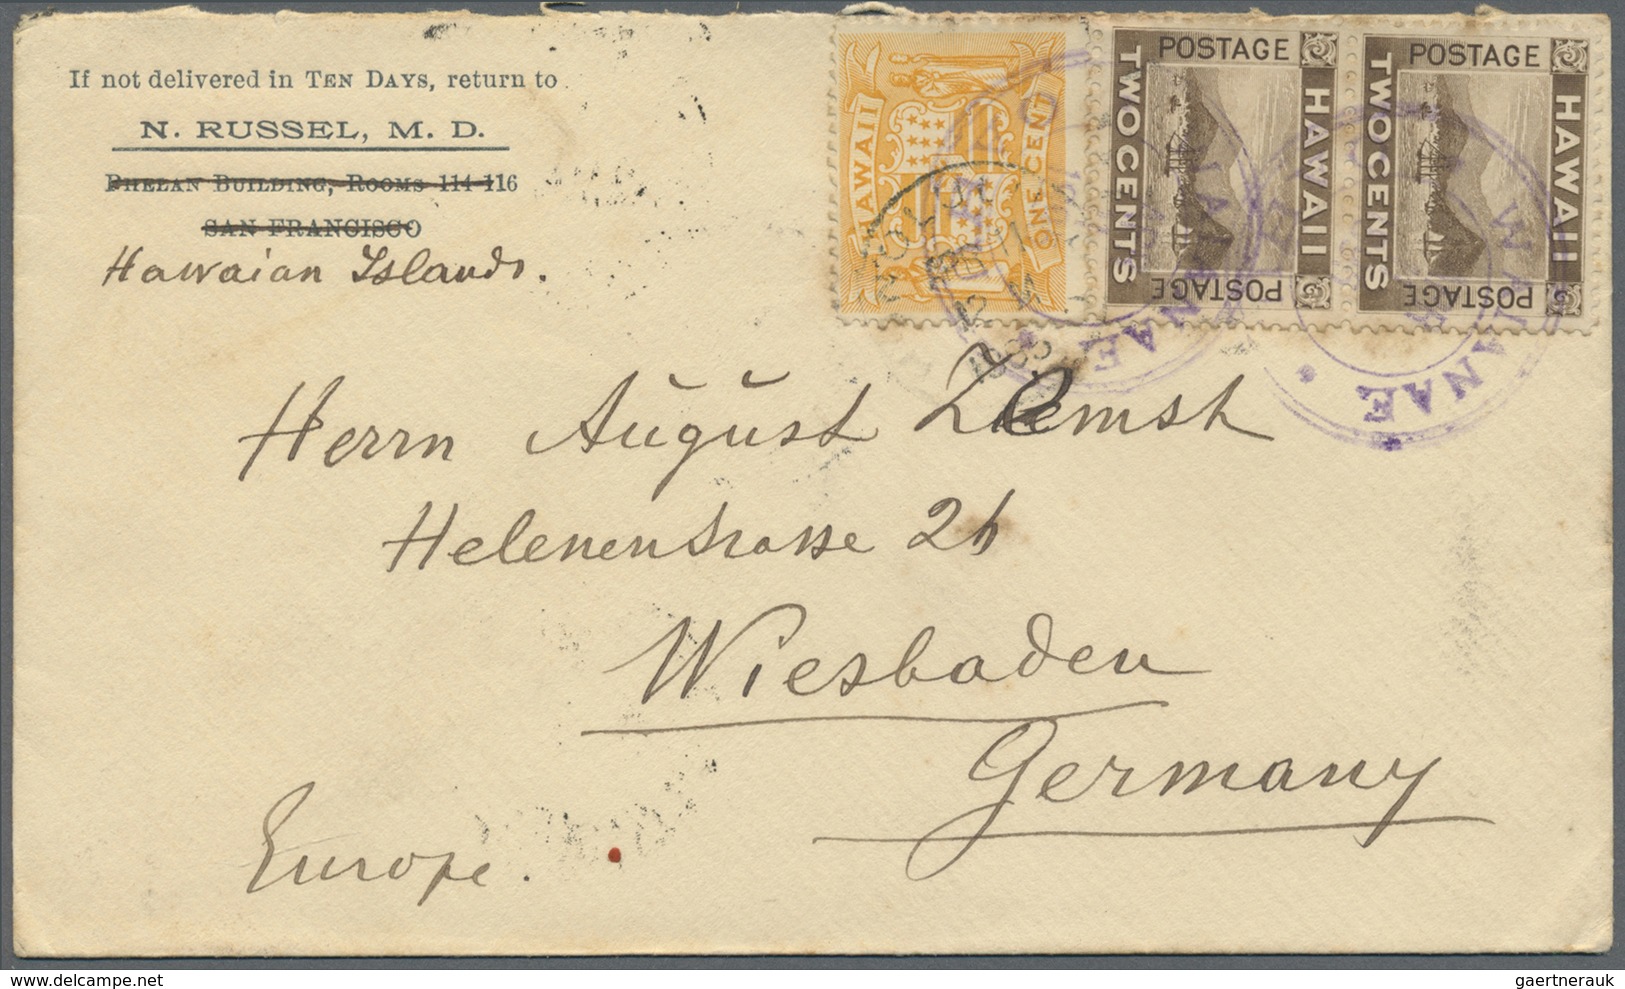 If not delivered in TEN DAYS, return to
N. RUSSEL, M. D.
PHELAN BUILDING, ROOMS 114-116
SAN FRANCISCO
Hawaian Islands.
HAWAII
ONE CENT
POSTAGE
HAWAII
TWO CENTS
POSTAGE
POSTAGE
HAWAII
TWO CENTS
POSTAGE
HONOLULU
WAIANAE
WAIANAE
Herrn August Ziemsh
Helenenstrasse 26
Wiesbaden
Germany
Europe.
delcampe.net
gaertnerauk